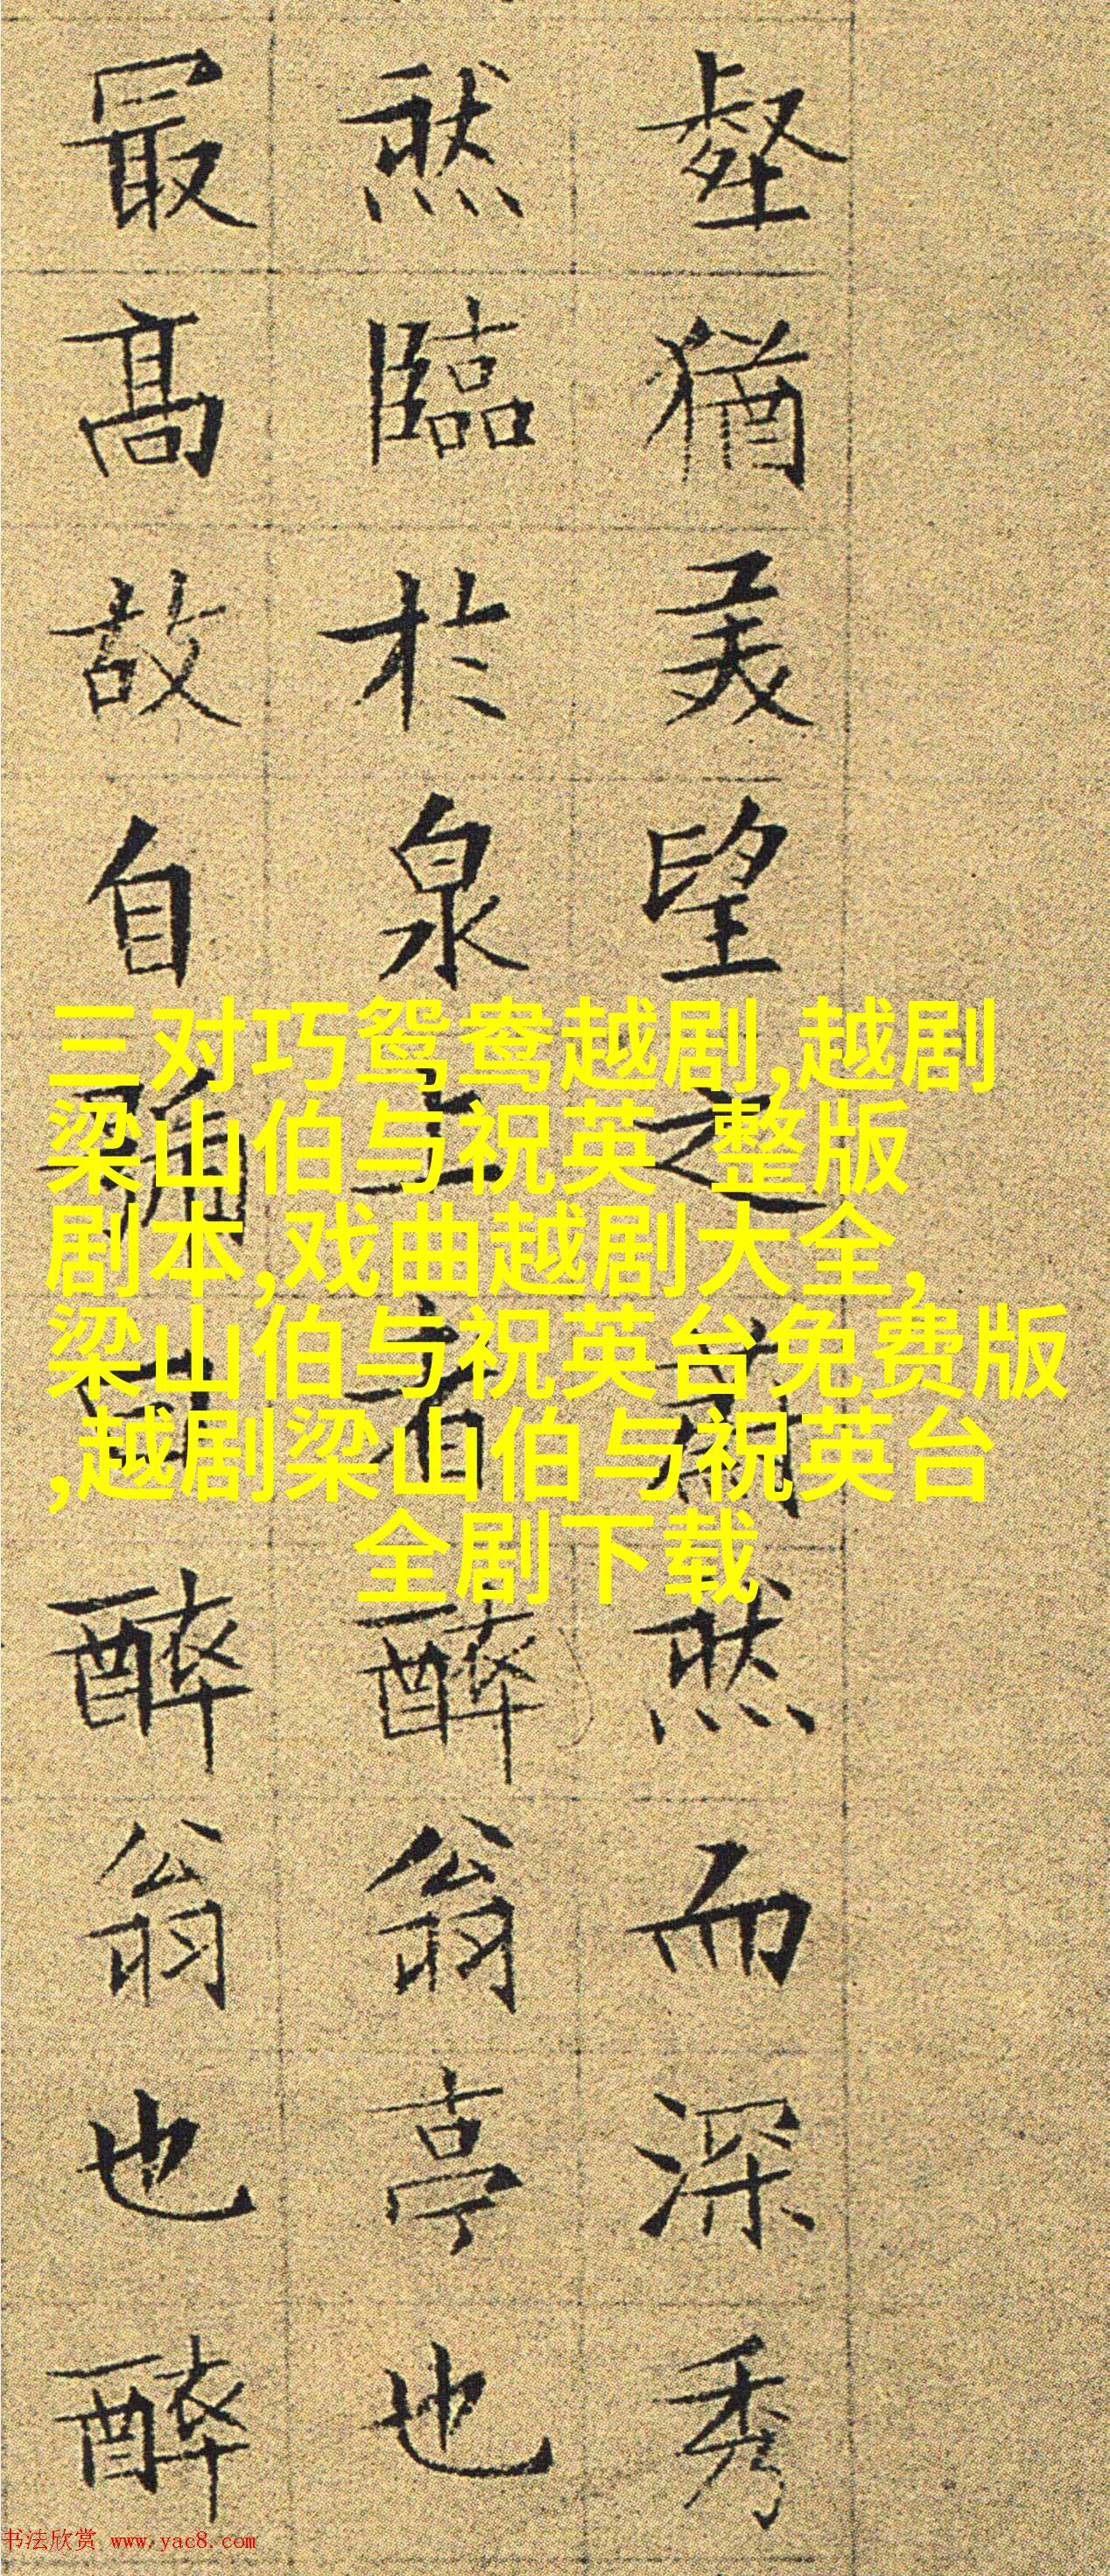 壑猶美望之蔚然而深秀
然臨於泉上者醉翁亭也
最高故自號曰醉翁也醉
三对巧鸳鸯越剧,越剧
梁山伯与祝英 整版
剧本,戏曲越剧大全,
梁山伯与祝英台免费版
,越剧梁山伯与祝英台
全剧下载
书法欣赏 www.yac8.com